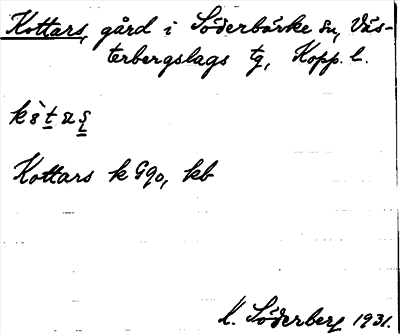 Kottars, gård i Söderbärke sn, Väs-
terbergslags tg, Kopp. l.
Kottars k G90, kb
M. Söderberg 1931.